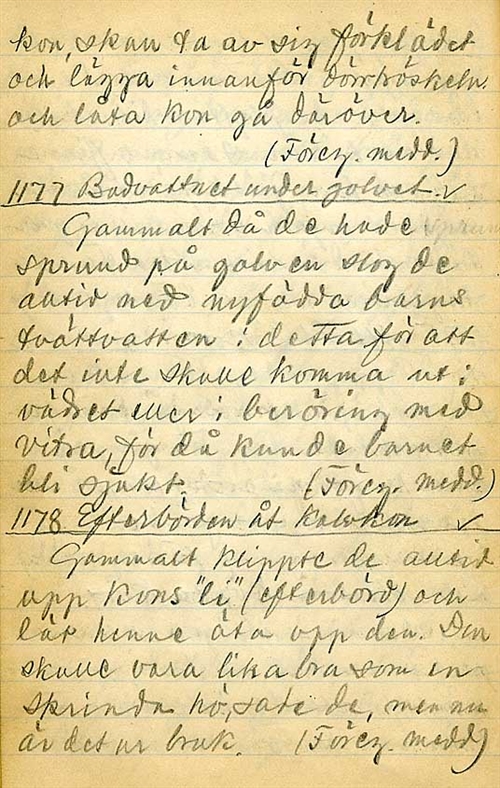 kon, skan ta av sig förklädet
och lägga innanför dörrtröskeln
och låta kon gå däröver.
(Föreg. medd.)
1177 Badvattnet under golvet. ✓
Gammalt då de hade
sprund på golven slog de
alltid ned nyfödda barns
tvättvatten i detta för att
det inte skulle komma ut i
vädret eller i beröring med
Vitra, för då kunde barnet
bli sjukt. (Föreg. medd.)
1178 Efterbörden åt kalvkon ✓
Gammalt klippte de alltid
upp kons "li" (efterbörd) och
lät henne äta upp den. Den
skulle vara lika bra som en
skrinda hö, sade de, men nu
är det ur bruk. (Föreg. medd)